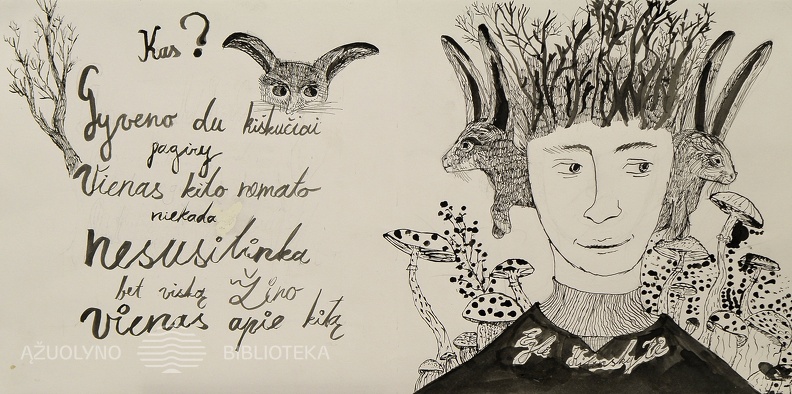 Kas?
Gyveno du kiškučiai
pagiry
Vienas kito nemato
niekada
nesusitinka
bet viską Žino
vienas apie kitą
AŽUOLYNO BIBLIOTEKA